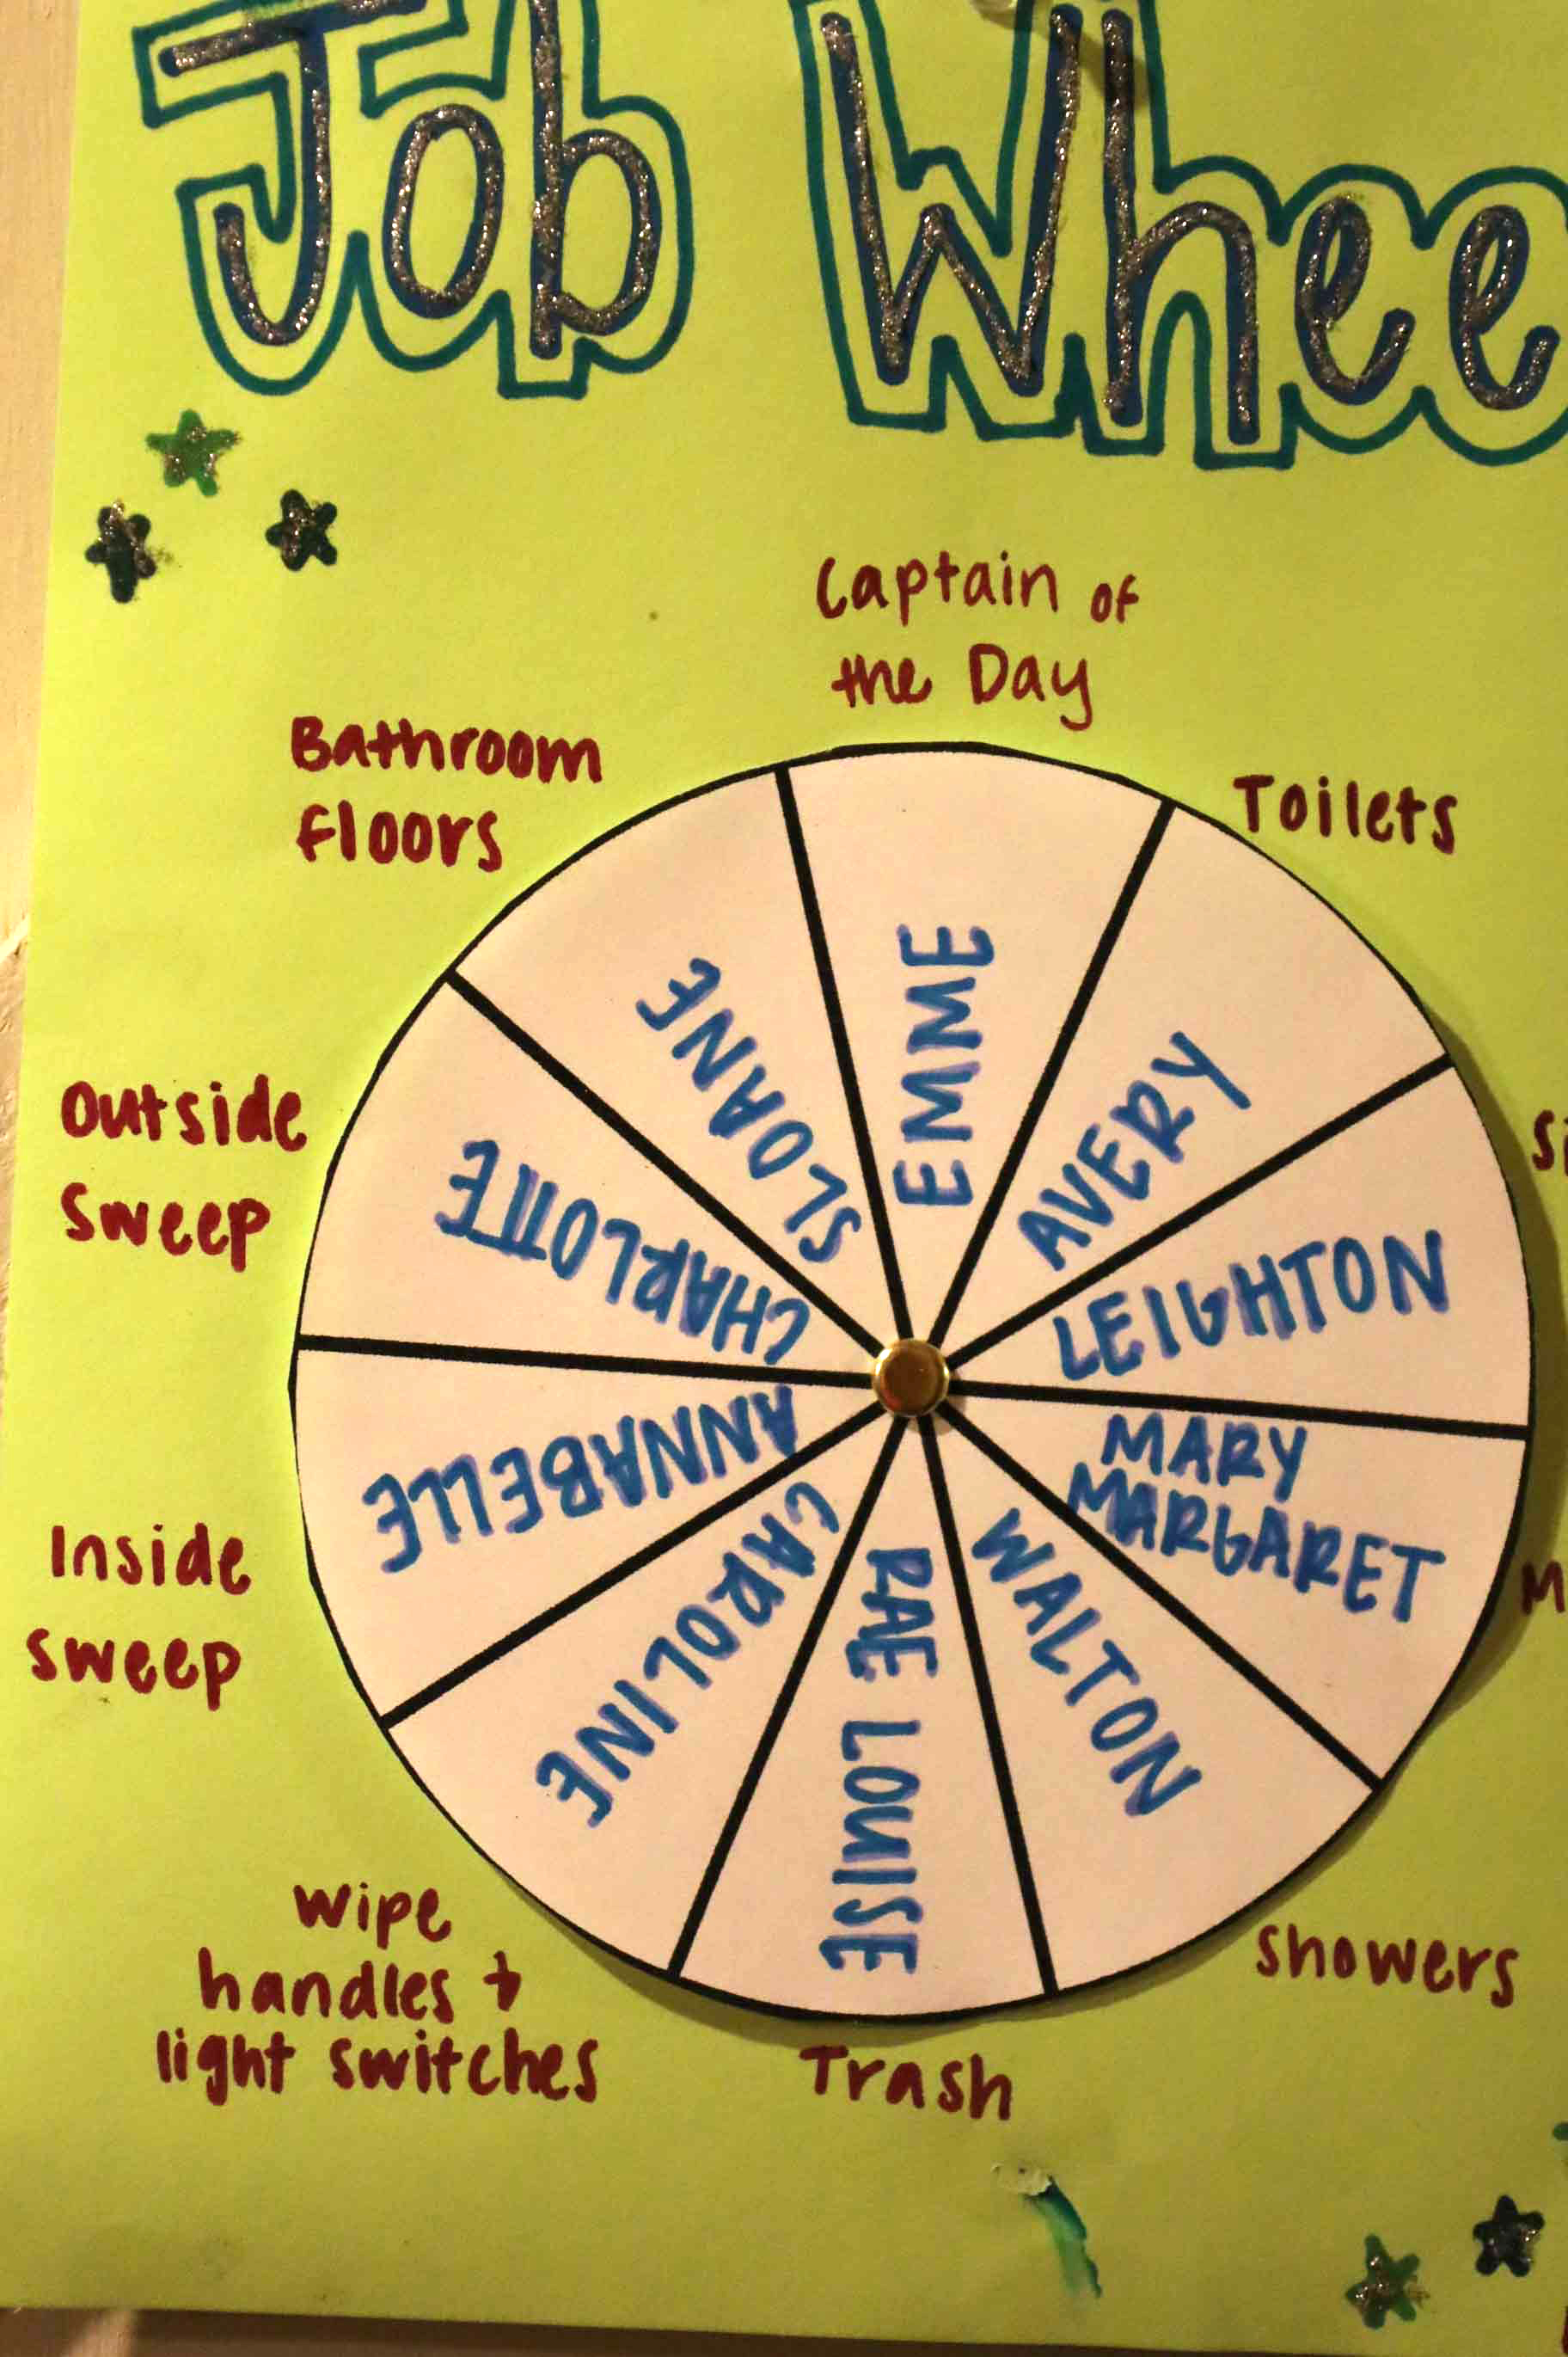 Job Whee
Captain of
the Day
Bathroom
floors
Toilets
Outside
sweep
Inside
sweep
wipe
handles +
light switches
Trash
showers
EMME
AVERY
LEIGHTON
MARY
MARGARET
WALTON
RAE LOUISE
CAROLINE
ANNABELLE
CHARLOTTE
SLOANE